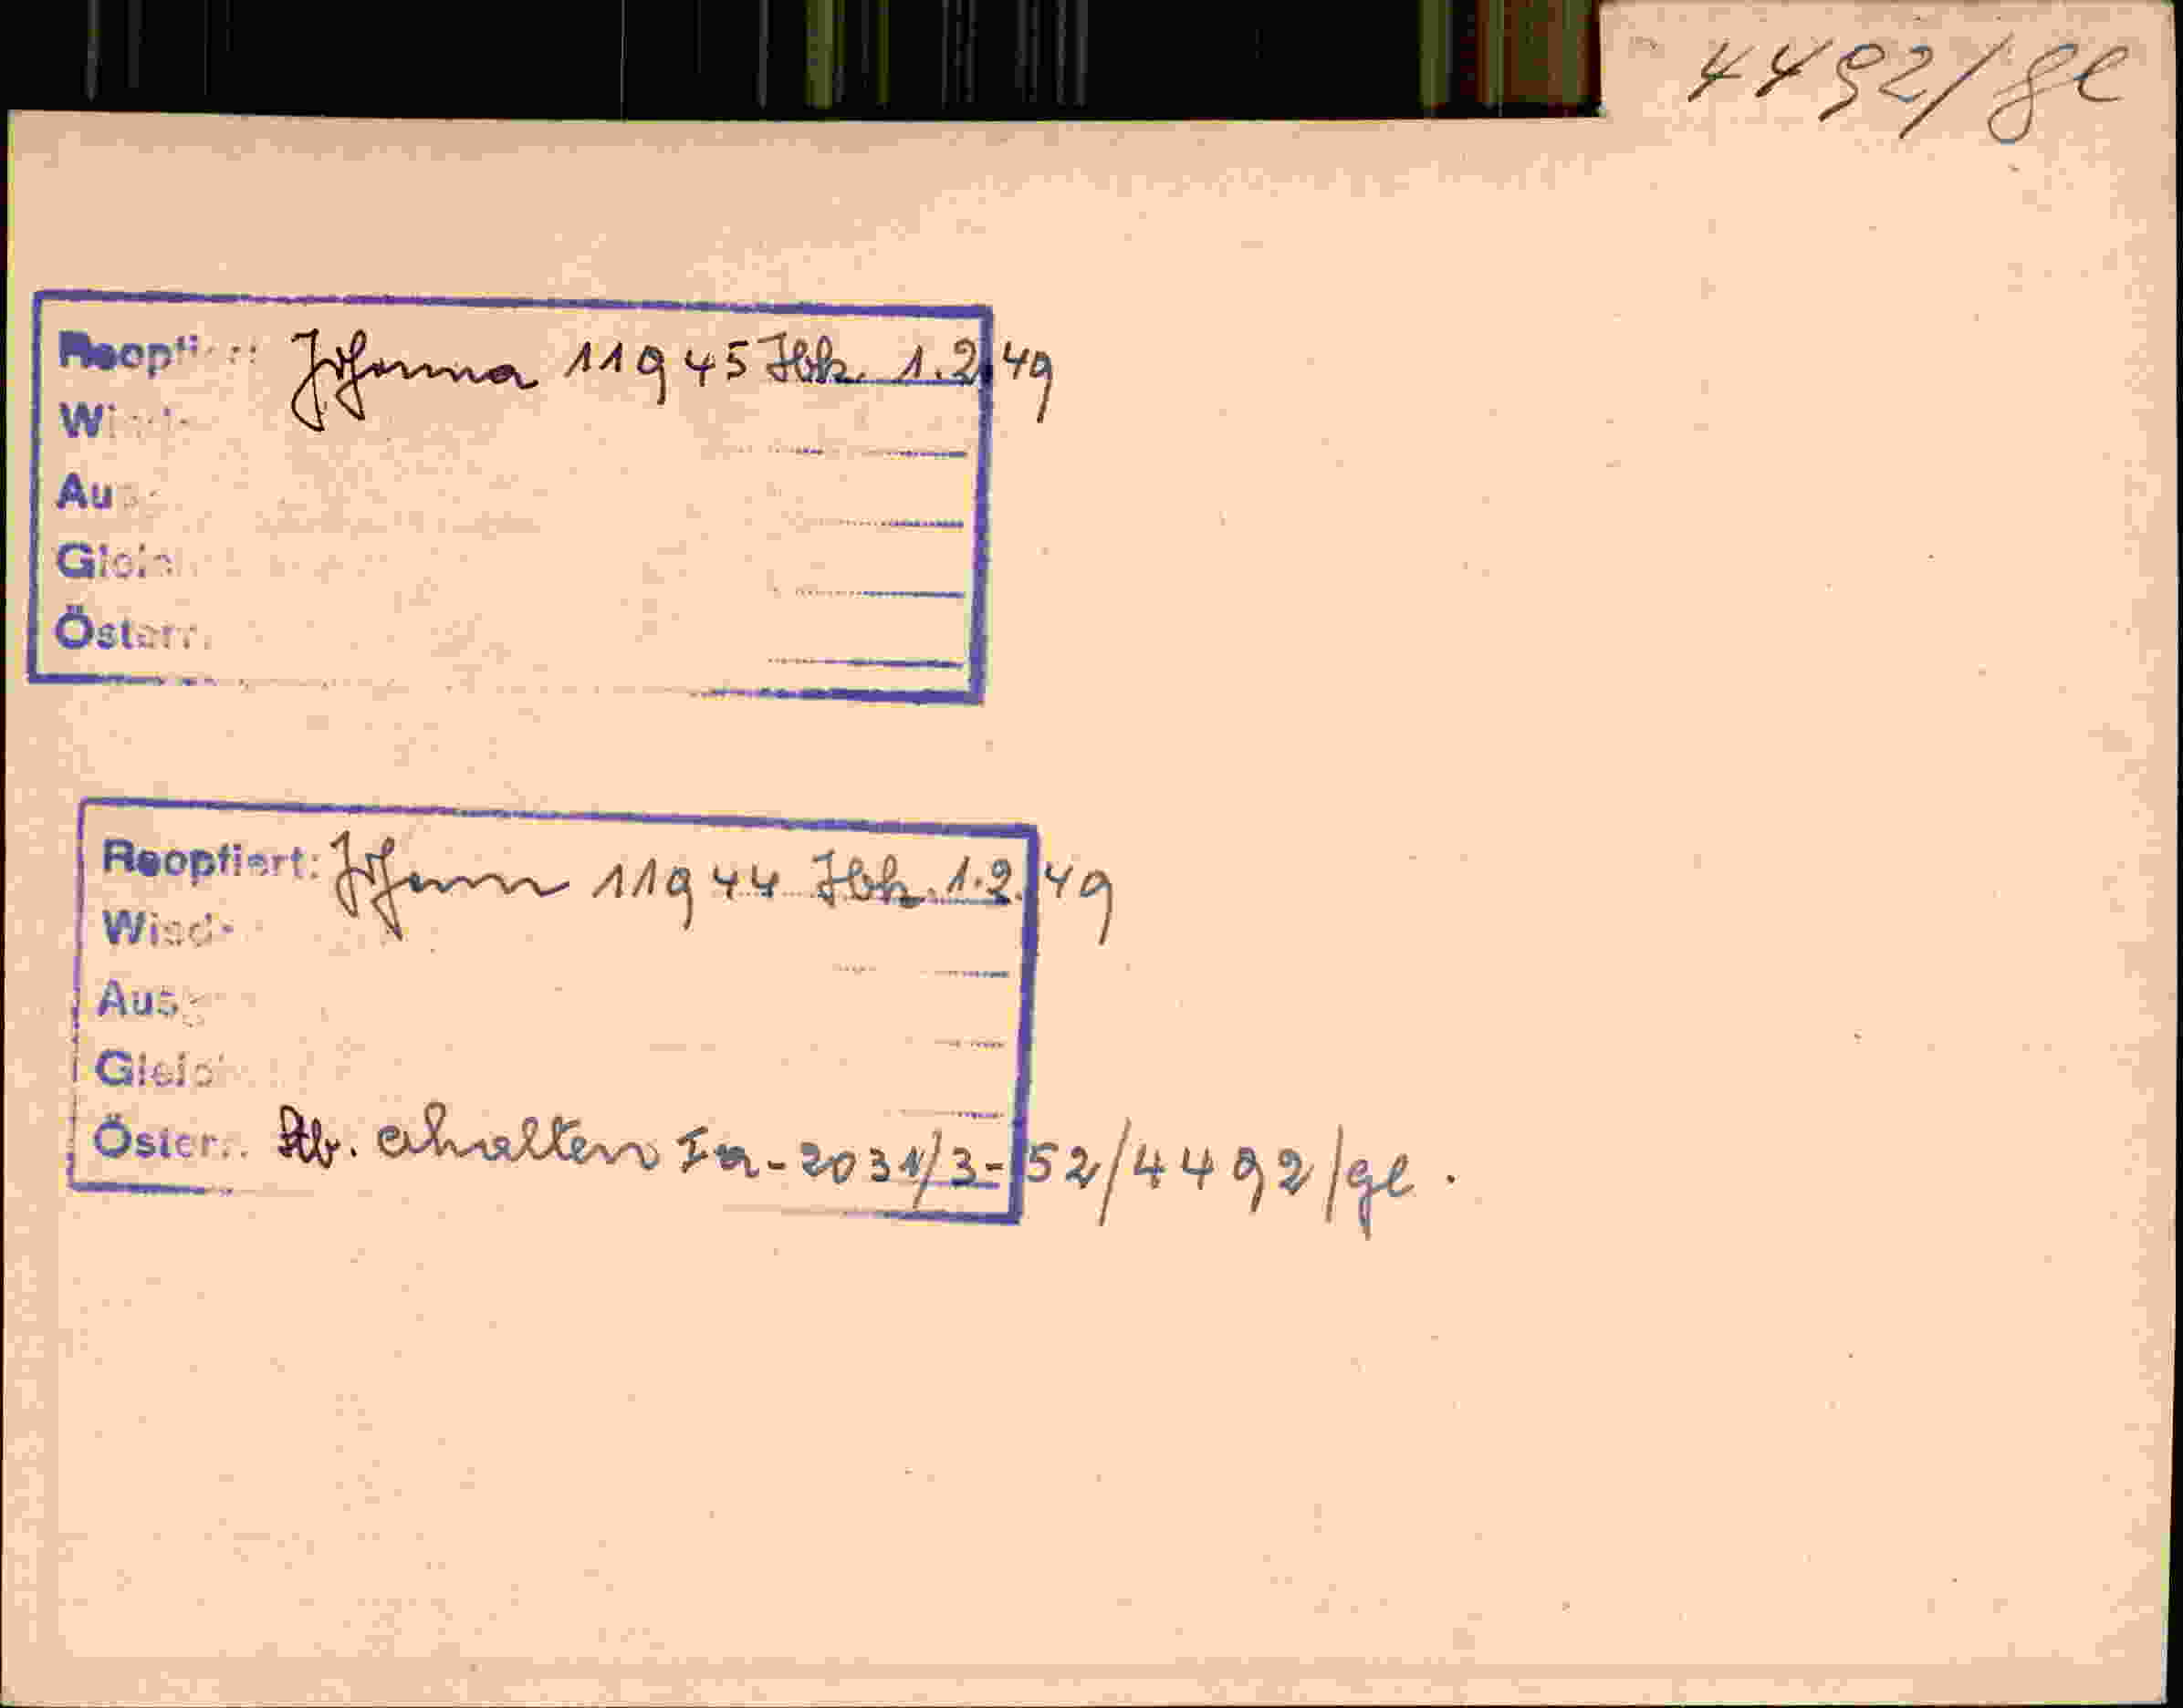 4492/gl
Reoptiert: Johanna 11945 Ibk. 1.2.49
Wied
Aus
Gleich
Österr.
Reoptiert: Johann 11944 Ibk. 1.2.49
Wied
Ausg
Gleich
Österr. Stb. erhalten Ia-2031/3-52/4492/gl.